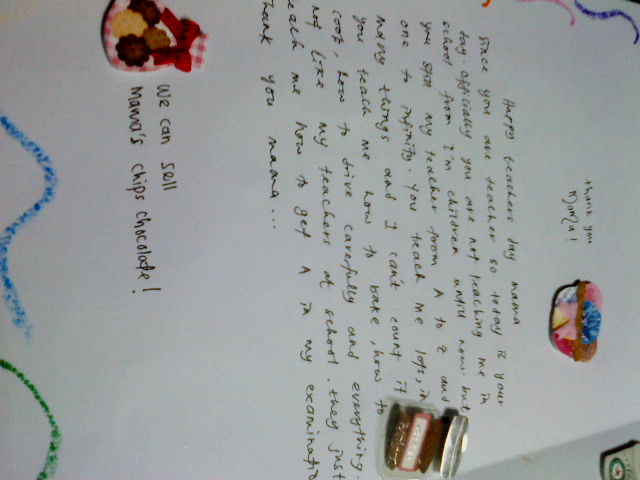 thank you
Mama!
Happy teachers day mama
since you are teacher so today is your
day. officially you are not teaching me in
school from I'm children until now but
you still my teacher from A to z and
one to infinity. You teach me lots, in
many things and I cant count it
you teach me how to bake, how to
cook, how to drive carefully and everything.
not like my teachers at school. they just
teach me how to get A in my examinatio
Thank you mama...
We can sell
Mama's chips chocolate!